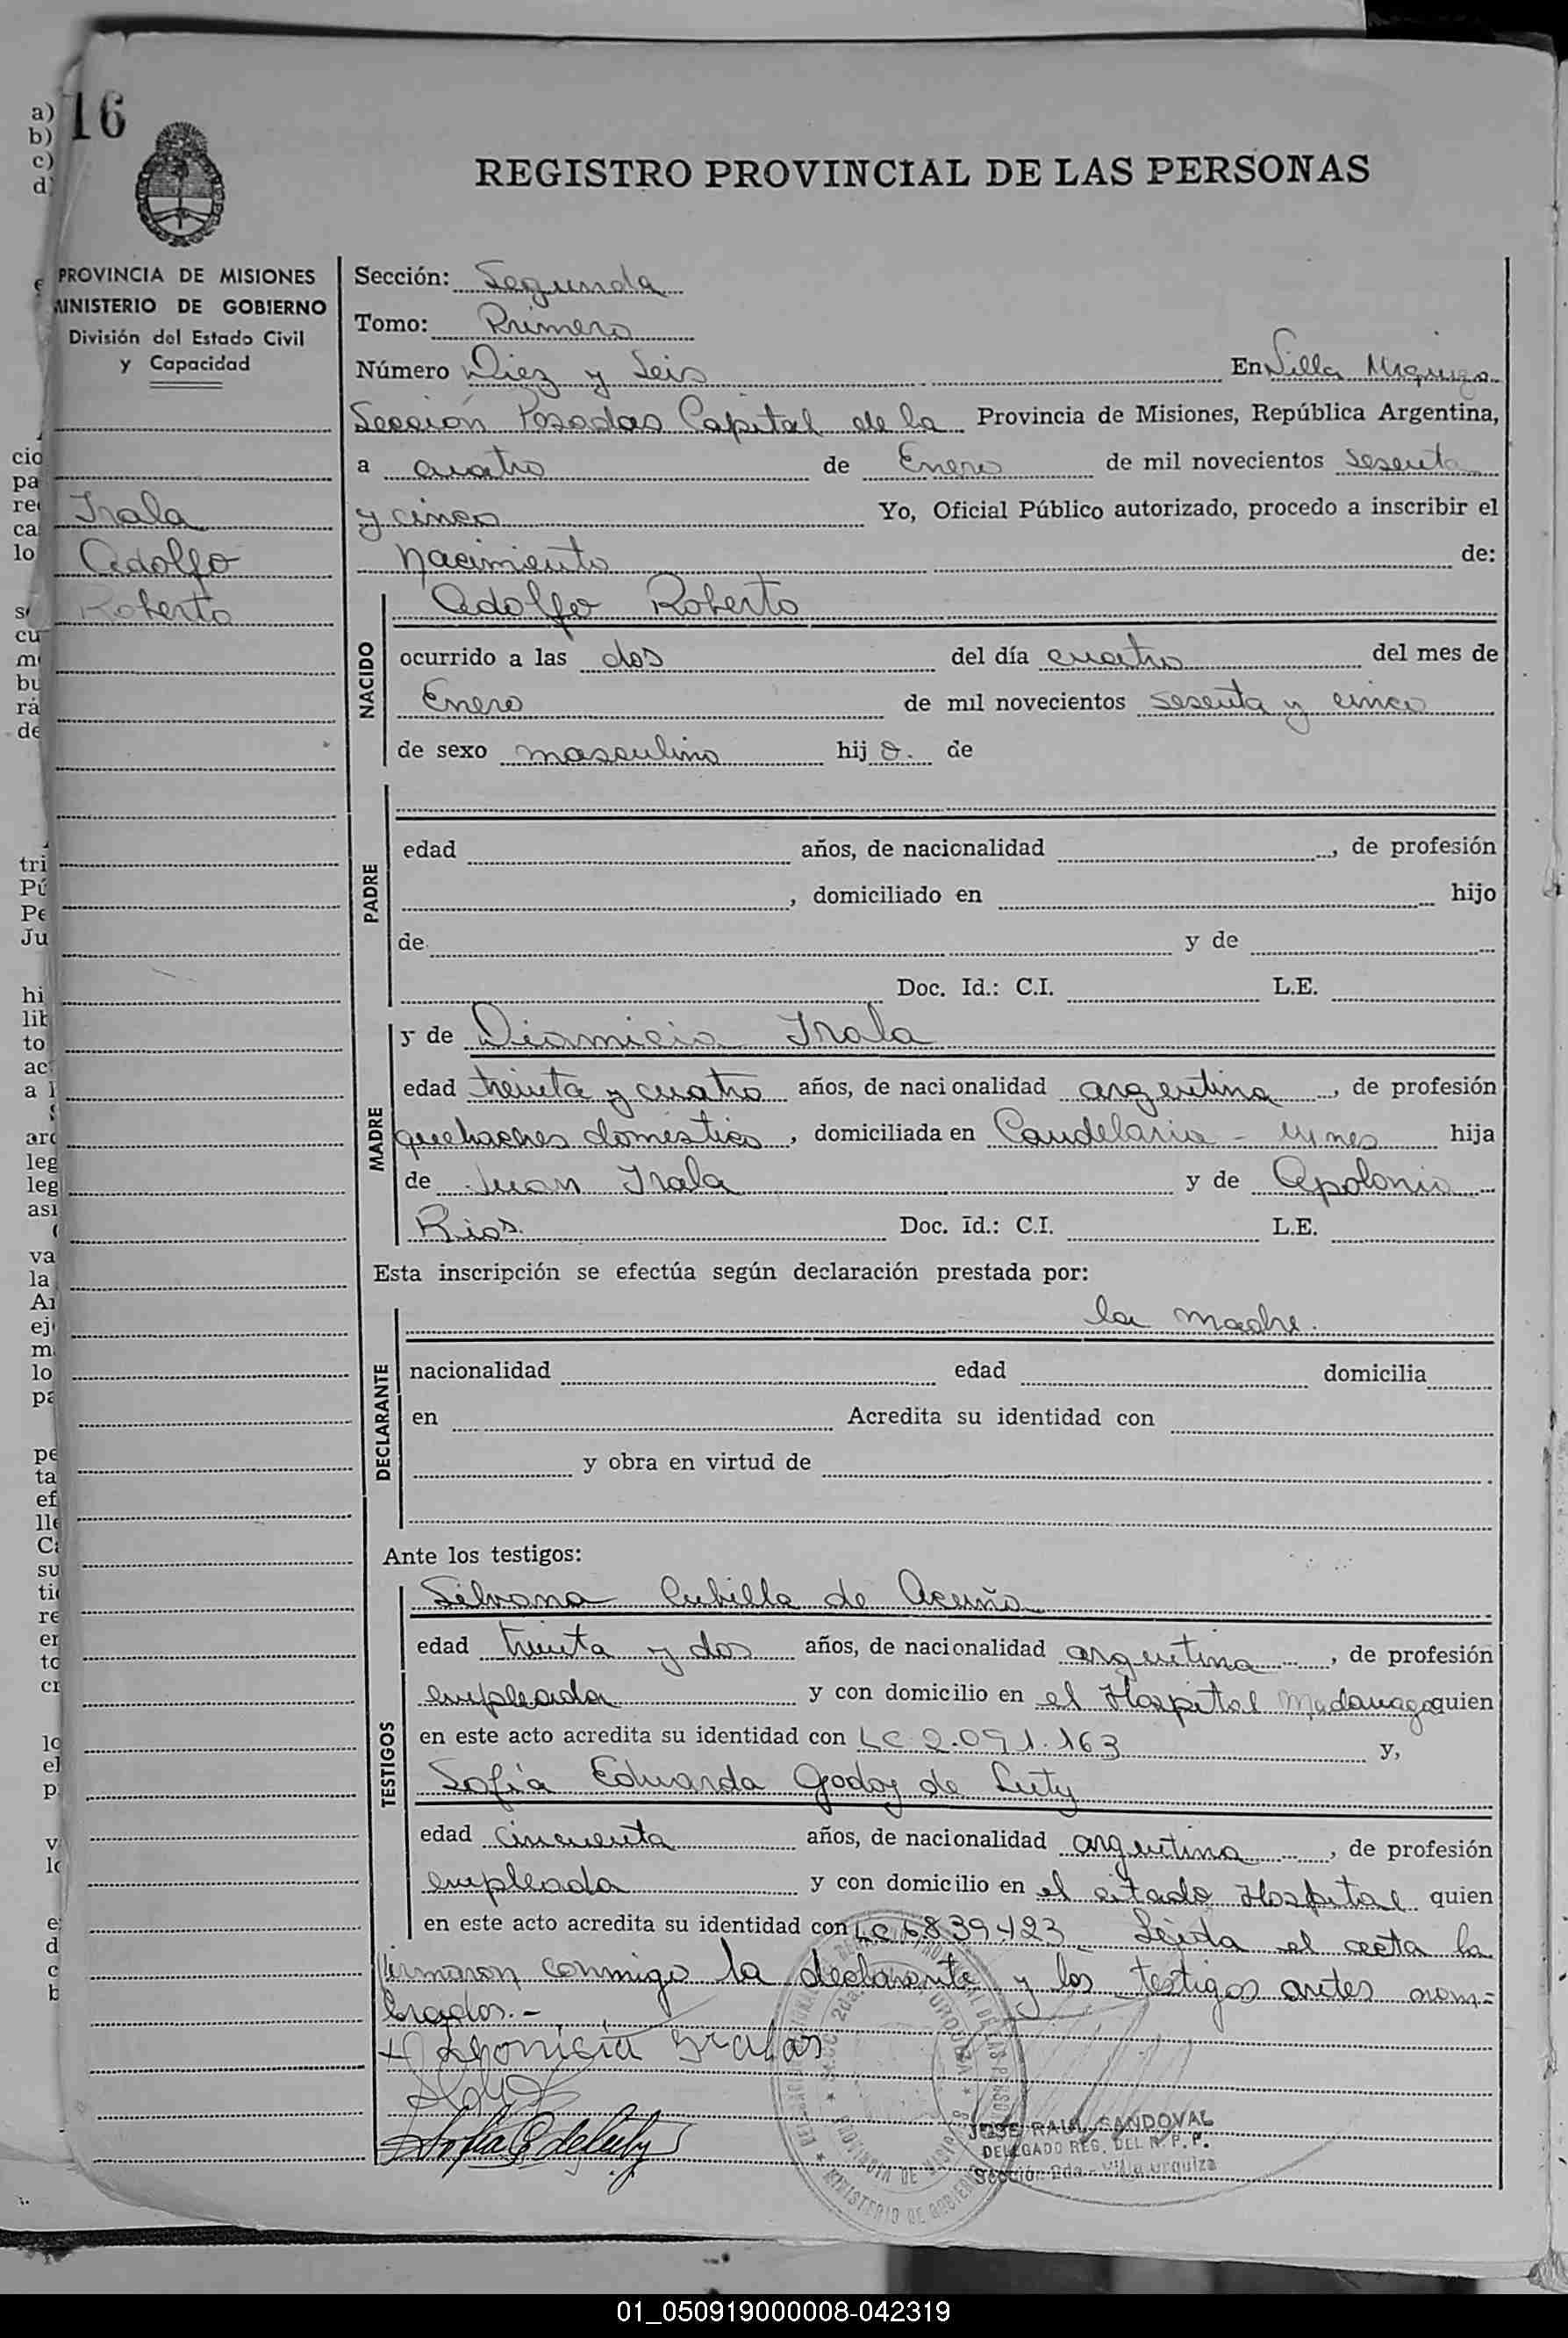 16
REGISTRO PROVINCIAL DE LAS PERSONAS
PROVINCIA DE MISIONES
MINISTERIO DE GOBIERNO
División del Estado Civil
y Capacidad
Irala
Adolfo
Roberto
Sección: Segunda
Tomo: Primero
Número Diez y Seis En Villa Urquiza
Sección Posadas Capital de la Provincia de Misiones, República Argentina,
a cuatro de Enero de mil novecientos sesenta
y cinco Yo, Oficial Público autorizado, procedo a inscribir el
nacimiento de:
NACIDO
Adolfo Roberto
ocurrido a las dos del día cuatro del mes de
Enero de mil novecientos sesenta y cinco
de sexo masculino hij o. de
PADRE
edad años, de nacionalidad , de profesión
, domiciliado en hijo
de y de
Doc. Id.: C.I. L.E.
MADRE
y de Dionicia Irala
edad treinta y cuatro años, de nacionalidad argentina , de profesión
quehaceres domestico , domiciliada en Candelaria - hija
de Juan Irala y de Apolonia
Rios. Doc. Id.: C.I. L.E.
Esta inscripción se efectúa según declaración prestada por:
DECLARANTE
la madre.
nacionalidad edad domicilia
en Acredita su identidad con
y obra en virtud de
Ante los testigos:
TESTIGOS
Silvana Cubilla de Acuña
edad treinta y dos años, de nacionalidad argentina , de profesión
empleada y con domicilio en el Hospital Madariaga quien
en este acto acredita su identidad con LC 2.091.163 y,
Sofia Eduarda Godoy de Luty
edad cincuenta años, de nacionalidad argentina , de profesión
empleada y con domicilio en el citado Hospital quien
en este acto acredita su identidad con LC 6839423 Leida el acta la
firmaron conmigo la declarante y los testigos antes nom-
brados.-
Irala
Sofia G de Luty
JOSE RAUL SANDOVAL
DELEGADO REG. DEL R. P. P.
Sección 2da - Villa Urquiza
01_050919000008-042319